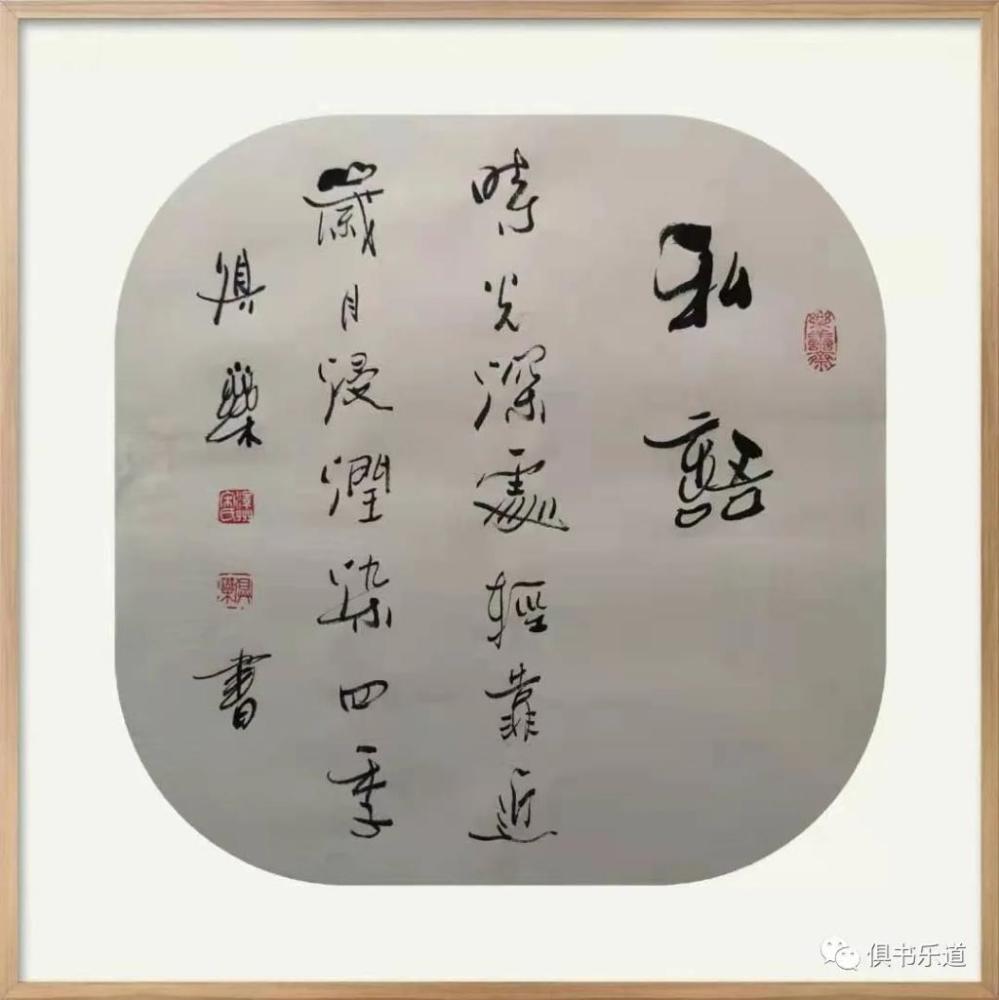 私語
時光深處輕靠近
歲月浸潤染四季
俱樂
書
俱书乐道